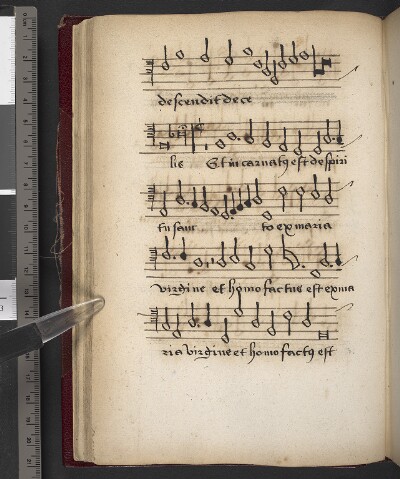 descendit de ce
lis Et incarnatꝯ est de spiri
tu sanc to ex maria
virgine et homo factus est ex ma
ria virgine et homo factꝯ est